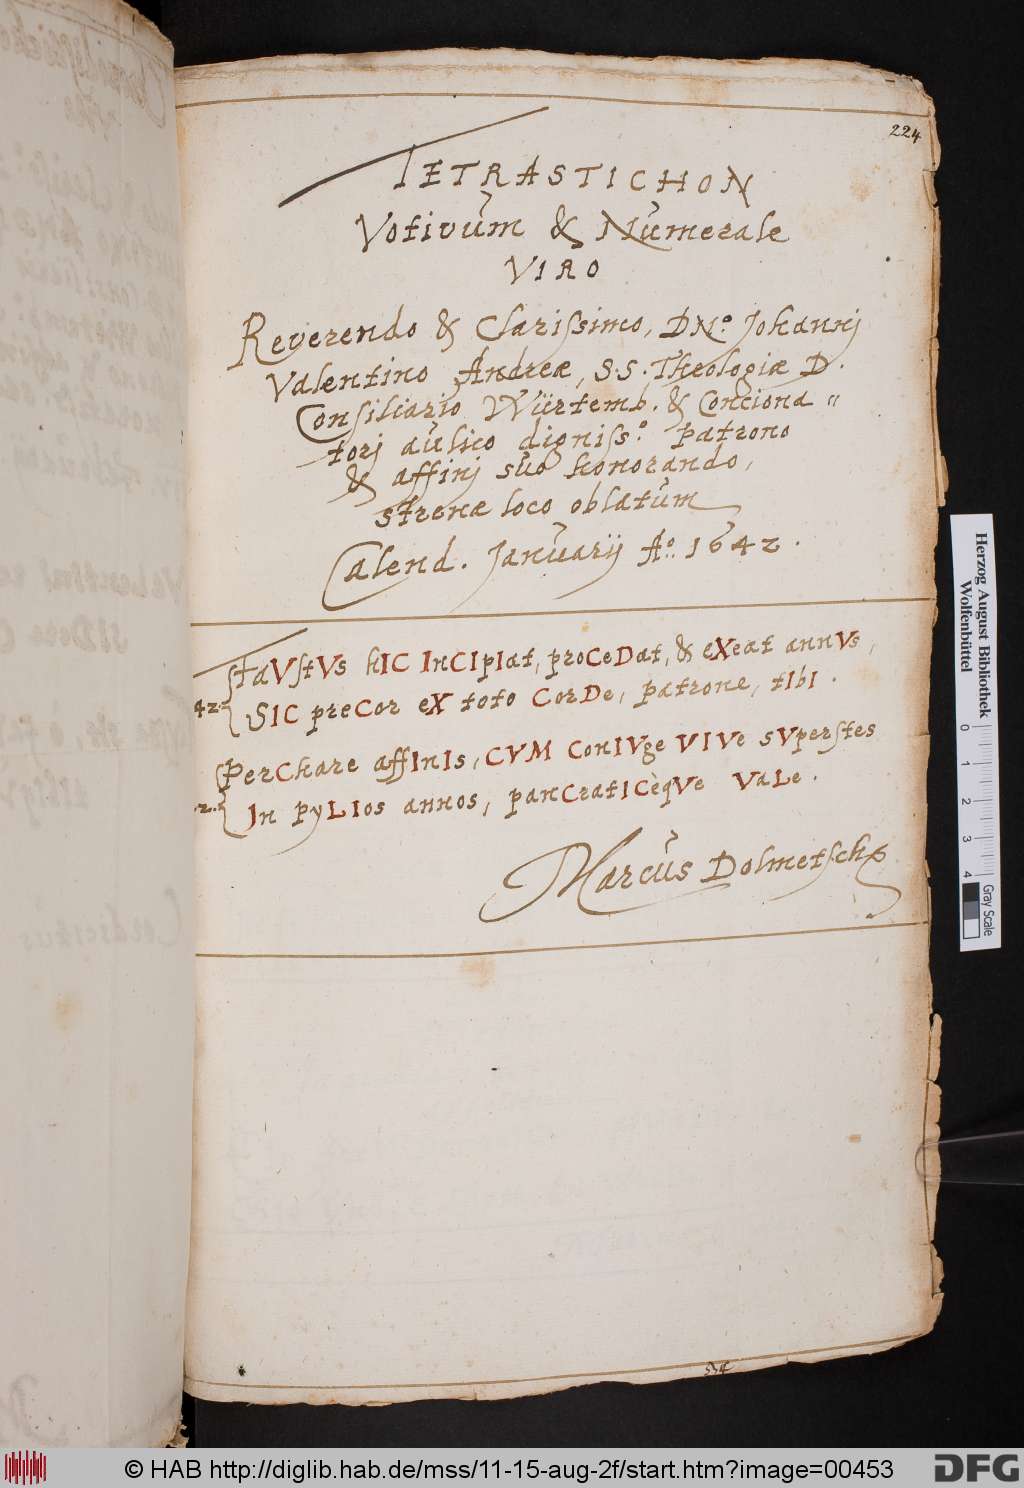 224
TETRASTICHON
Votivum & Numerale
VIRO
Reverendo & Clarissimo, DNo. Johannj
Valentino Andreæ, S.S. Theologiæ D.
Consiliario Würtemb. & Conciona〃
torj aulico digniss.o patrono
& affinj suo honorando,
strenæ loco oblatum
Calend. Januarij Ao. 1642.
FaVstVs hIC InCIpIat, proCeDat, & eXeat annVs,
42.
SIC preCor eX toto CorDe, patrone, tIbI.
PerChare affInIs, CVM ConIVge VIVe sVperstes
.2.
In pyLIos annos, panCratICèqVe VaLe.
Marcus Dolmetsch
Herzog August Bibliothek
Wolfenbüttel
0 1 2 3 4
Gray Scale
© HAB http://diglib.hab.de/mss/11-15-aug-2f/start.htm?image=00453
DFG